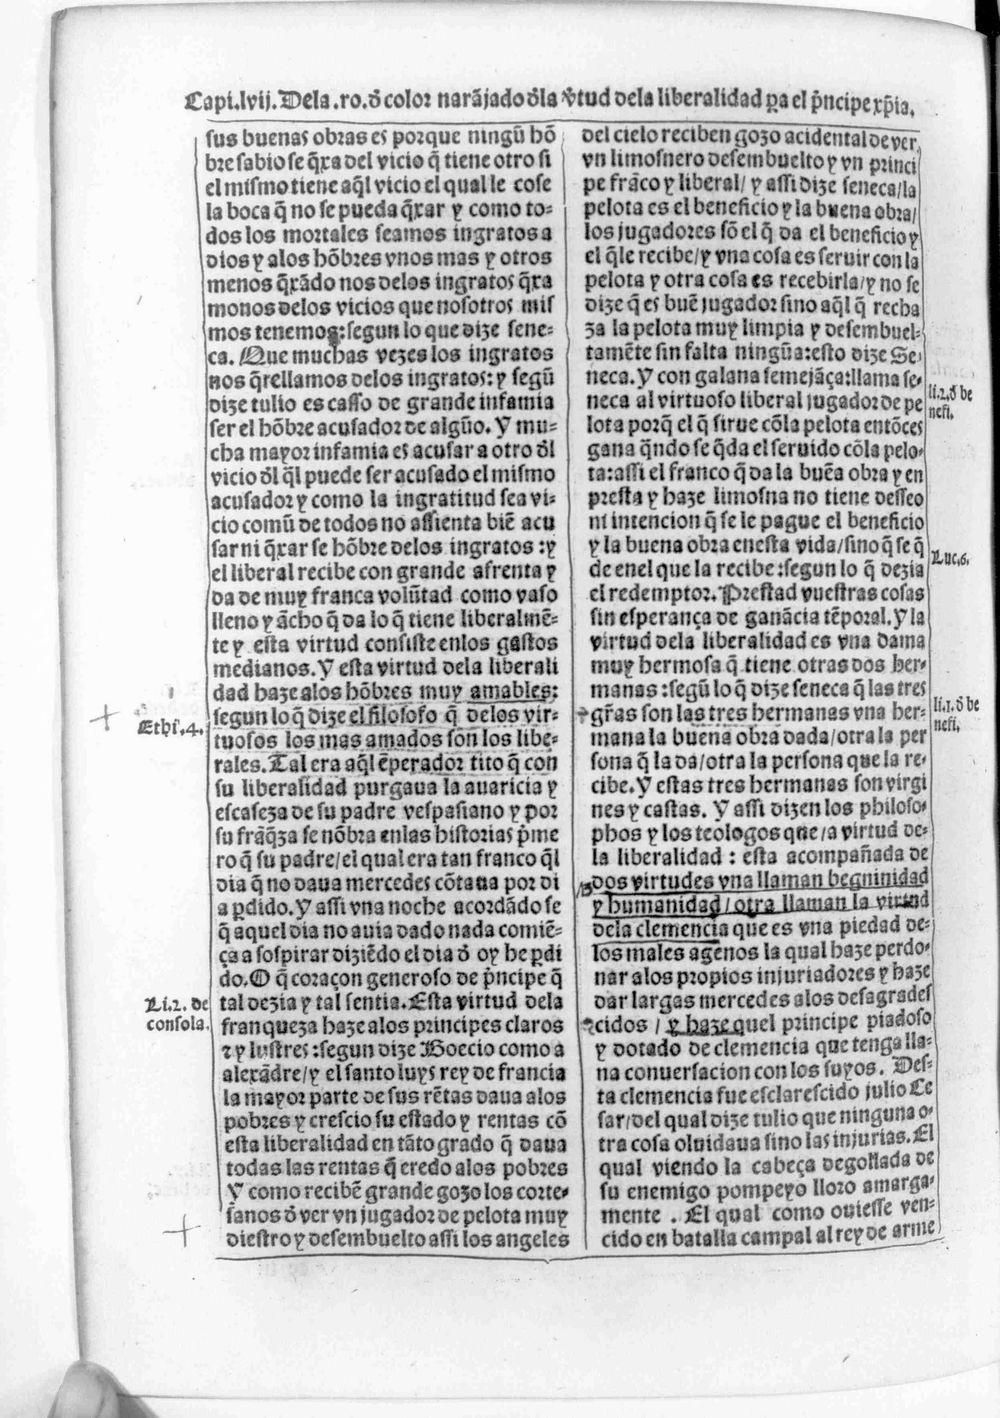 Capi.lvij. Dela .ro. ð color narãjado ðla v̾tud dela liberalidad p̱a el p̃ncipe xp̃ia.
sus buenas obras es porque ningũ hõ
bre sabio se q̃xa del vicio q̃ tiene otro si
el mismo tiene aq̃l vicio el qual le cose
la boca q̃ no se pueda q̃xar y como to-
dos los mortales seamos ingratos a
dios y alos hõbres vnos mas y otros
menos q̃xãdo nos delos ingratos q̃xa
monos delos vicios que nosotros mis
mos tenemos: segun lo que dize sene-
ca. Que muchas vezes los ingratos
nos q̃rellamos delos ingratos: y segũ
dize tulio es casso de grande infamia
ser el hõbre acusador de algũo. Y mu-
cha mayor infamia es acusar a otro ðl
vicio ðl q̃l puede ser acusado el mismo
acusador y como la ingratitud sea vi-
cio comũ de todos no assienta biẽ acu
sar ni q̃xar se hõbre delos ingratos : y
el liberal recibe con grande afrenta y
da de muy franca volũtad como vaso
lleno y ãcho q̃ da lo q̃ tiene liberalmẽ-
te y esta virtud consiste enlos gastos
medianos. Y esta virtud dela liberali
dad haze alos hõbres muy amables:
segun lo q̃ dize el filosofo q̃ delos vir-
Ethi. 4.
tuosos los mas amados son los libe-
rales. Tal era aq̃l ẽperador tito q̃ con
su liberalidad purgaua la auaricia y
escaseza de su padre vespasiano y por
su frãq̃za se nõbra enlas historias p̃me
ro q̃ su padre/ el qual era tan franco q̃l
dia q̃ no daua mercedes cõtaua por di
a p̱dido. Y assi vna noche acordãdo se
q̃ aquel dia no auia dado nada comiẽ-
ça a sospirar diziẽdo el dia ð oy he p̱di
do. O q̃ coraçon generoso de p̃ncipe q̃
tal dezia y tal sentia. Esta virtud dela
Li. 2. de
consola.
franqueza haze alos principes claros
⁊ y lustres : segun dize Boecio como a
alexãdre/ y el santo luys rey de francia
la mayor parte de sus rẽtas daua alos
pobres y crescio su estado y rentas cõ
esta liberalidad en tãto grado q̃ daua
todas las rentas q̃ eredo alos pobres
Y como recibẽ grande gozo los corte-
sanos ð ver vn jugador de pelota muy
diestro y desembuelto assi los angeles
del cielo reciben gozo acidental de ver
vn limosnero desembuelto y vn princi
pe frãco y liberal/ y assi dize seneca/ la
pelota es el beneficio y la buena obra/
los jugadores sõ el q̃ da el beneficio y
el q̃ le recibe/ y vna cosa es seruir con la
pelota y otra cosa es recebirla/ y no se
dize q̃ es buẽ jugador sino aq̃l q̃ recha
za la pelota muy limpia y desembuel-
tamẽte sin falta ningũa: esto dize Se-
neca. Y con galana semejãça: llama se-
neca al virtuoso liberal jugador de pe
li. 2. ð be
nefi.
lota porq̃ el q̃ sirue cõla pelota entõces
gana q̃ndo se q̃da el seruido cõla pelo-
ta: assi el franco q̃ da la buẽa obra y en
presta y haze limosna no tiene desseo
ni intencion q̃ se le pague el beneficio
y la buena obra enesta vida/ sino q̃ se q̃
de enel que la recibe : segun lo q̃ dezia
Luc. 6.
el redemptor. Prestad vuestras cosas
sin esperança de ganãcia tẽporal. Y la
virtud dela liberalidad es vna dama
muy hermosa q̃ tiene otras dos her-
manas : segũ lo q̃ dize seneca q̃ las tres
gr̃as son las tres hermanas vna her-
li. 1. ð be
nefi.
mana la buena obra dada/ otra la per
sona q̃ la da/ otra la persona que la re-
cibe. Y estas tres hermanas son virgi
nes y castas. Y assi dizen los philoso-
phos y los teologos que/ a virtud de-
la liberalidad : esta acompañada de
dos virtudes vna llaman begninidad
y humanidad/ otra llaman la virtud
dela clemencia que es vna piedad de-
los males agenos la qual haze perdo-
nar alos propios injuriadores y haze
dar largas mercedes alos desagrades
cidos / y haze quel principe piadoso
y dotado de clemencia que tenga lla-
na conuersacion con los suyos. Des-
ta clemencia fue esclarescido julio Ce
sar/ del qual dize tulio que ninguna o-
tra cosa oluidaua sino las injurias. El
qual viendo la cabeça degollada de
su enemigo pompeyo lloro amarga-
mente . El qual como ouiesse ven-
cido en batalla campal al rey de arme